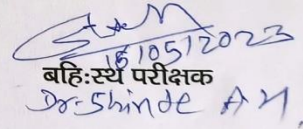 15/05/2023
बहि:स्थ परीक्षक
Dr. Shinde A Y